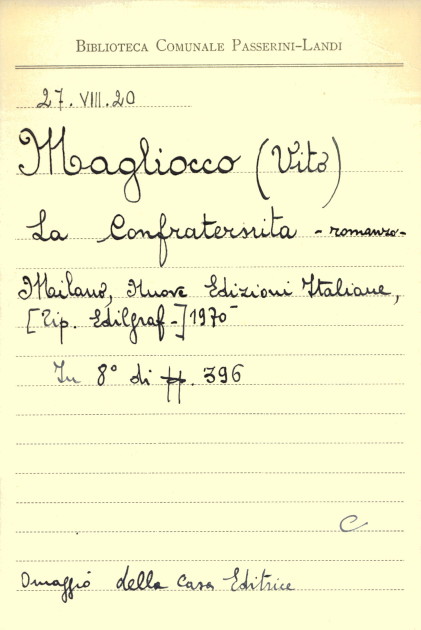 BIBLIOTECA COMUNALE PASSERINI-LANDI
27. VIII. 20
Magliocco (Vito)
La Confraternita - romanzo -
Milano, Nuove Edizioni Italiane,
[Tip. Edilgraf-] 1970
In 8° di pp. 396
C
Omaggio della Casa Editrice